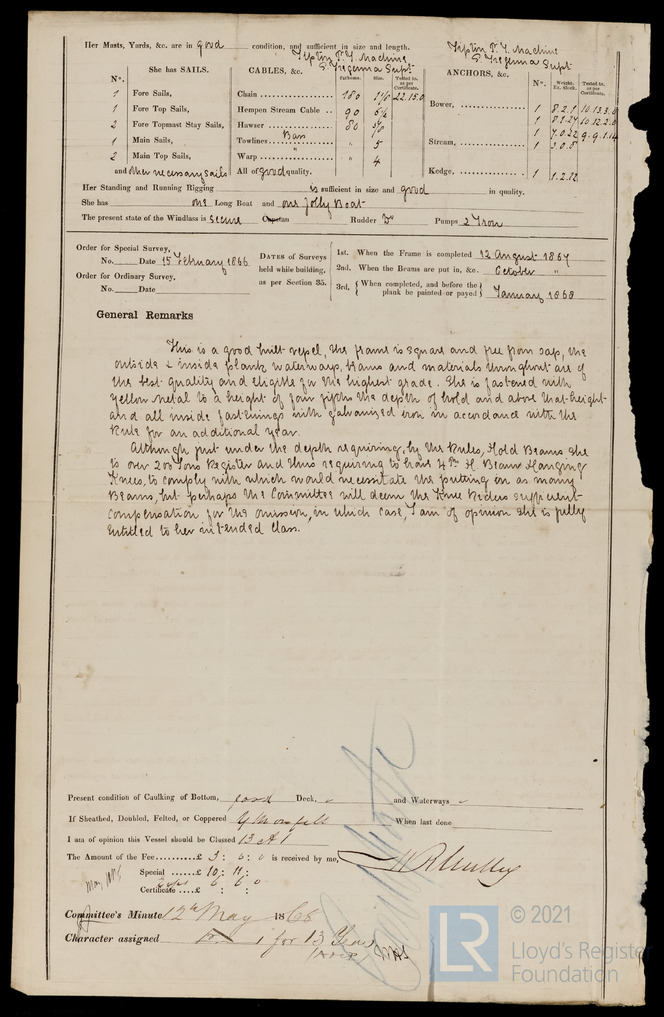 Her Masts, Yards, &c. are in good condition, and sufficient in size and length.
Tipton P. T. Machine
Supt
Tipton P. T. Machine
Supt
No.
She has SAILS.
CABLES, &c.
Fathoms.
Size.
Tested to, as per Certificate.
ANCHORS, &c.
No.
Weight. Ex. Stock.
Tested to, as per Certificate.
1 Fore Sails,
1 Fore Top Sails,
2 Fore Topmast Stay Sails,
1 Main Sails,
2 Main Top Sails,
and other necessary sails
Chain 180 22.15.0
Hempen Stream Cable 90
Hawser 80
Bass
Towlines 5
Warp 4
All of good quality.
Bower, 1 8.2.1 10.13.3.0
1 8.1.27 10.12.2.0
1 7.0.22 9.9.1.14
Stream, 1 3.0.8
Kedge, 1 1.2.22
Her Standing and Running Rigging is sufficient in size and good in quality.
She has one Long Boat and one Jolly Boat
The present state of the Windlass is secure Capstan Rudder Do Pumps 2 Iron
Order for Special Survey,
No. Date 15 February 1866
Order for Ordinary Survey,
No. Date
DATES of Surveys
held while building,
as per Section 35.
1st. When the Frame is completed 12 August 1867
2nd. When the Beams are put in, &c. October "
3rd, { When completed, and before the plank be painted or payed } January 1868
General Remarks
This is a good built vessel, the frame is square and free from sap, the
outside & inside plank waterways, beams and materials throughout are of
the best quality and eligible for the highest grade. She is fastened with
yellow metal to a height of four fifths the depth of hold and above that height
and all inside fastenings with galvanized iron in accordance with the
Rule for an additional year.
Although just under the depth requiring, by the Rules, Hold Beams she
is over 200 Tons Register and thus requiring to have 4 Pr. H. Beams Hanging
Knees, to comply with which would necessitate the putting on as many
Beams, but perhaps the Committee will deem the Knee Riders sufficient
compensation for the omission, in which case, I am of opinion she is fully
entitled to her intended class.
Present condition of Caulking of Bottom, good Deck, and Waterways
If Sheathed, Doubled, Felted, or Coppered When last done
I am of opinion this Vessel should be Classed 13 A 1
The Amount of the Fee £ 3 : 0 : 0 is received by me,
Special £ 10 : 11 :
Certificate £ 0 : 6 : 0
Committee's Minute 12th May 1868
Character assigned 1 for 13 Years
© 2021
LR
Lloyd's Register
Foundation